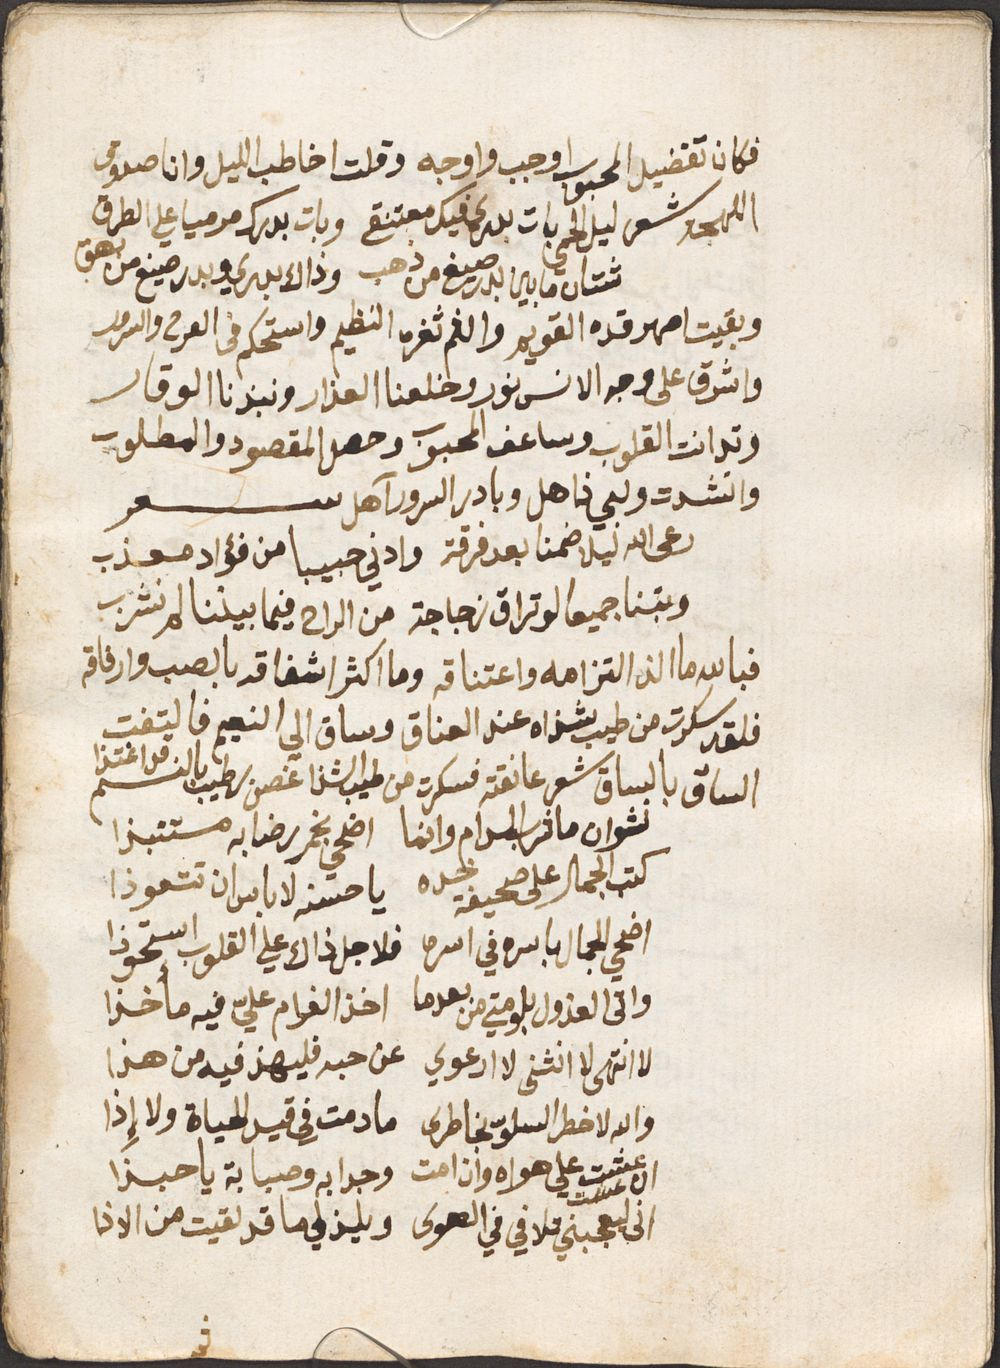 فكان تفضيل المحبوب اوجب واوجه وقلت اخاطب الليل وانا صدوق
اللهجه شعر ليل الحمى بات بدري فيك معتنقي وبات بدرك مرميا على الطرق
شتان ما بين بدر صيغ من ذهب وذاك بدري وبدر صيغ من بهق
وبقيت اهصر قده القويم والثم ثغره النظيم واستحكم في الفرح والسرور
واشرق على وجه الانس نور وخلعنا العذار ونبذنا الوقار
وتدانت القلوب وساعف المحبوب وحصل المقصود والمطلوب
وانشدت ولبي ذاهل وبادر السرور آهل شعر
رعى الله ليلا ضمنا بعد فرقة وادني حبيبا من فؤاد معذب
وبتنا جميعا لو تراق زجاجة من الراح فيما بيننا لم تشرب
فبالله ما الذ التزامه واعتناقه وما اكثر اشفاقه بالصب وارفاقه
فلقد سكرت من طيب شذاه عند العناق وساق الي النعيم فالتفت
الساق بالساق شعر عانقته فسكرت من طيب الشذا غصن رطيب بالنسيم قد اغتذا
نشوان ما شرب المدام وانما اضحى بخمر رضابه متنبذا
كتب الجمال على صحيفة خده يا حسنه لا باس ان تتعوذا
اضحى الجمال باسره في اسره فلاجل ذاك على القلوب استحوذا
واتى العذول يلومني من بعد ما اخذ الغرام عليّ فيه مأخذا
لا انتهى لا انثنى لا ارعوي عن حبه فليهذ فيه من هذا
والله لا خطر السلوّ بخاطري ما دمت في قيد الحياة ولا إذا
ان عشت عشت علي هواه وان امت وجدا به وصبابة يا حبذا
اني ليعجبني تلافي في الهوى ويلذ لي ما قد لقيت من الاذا